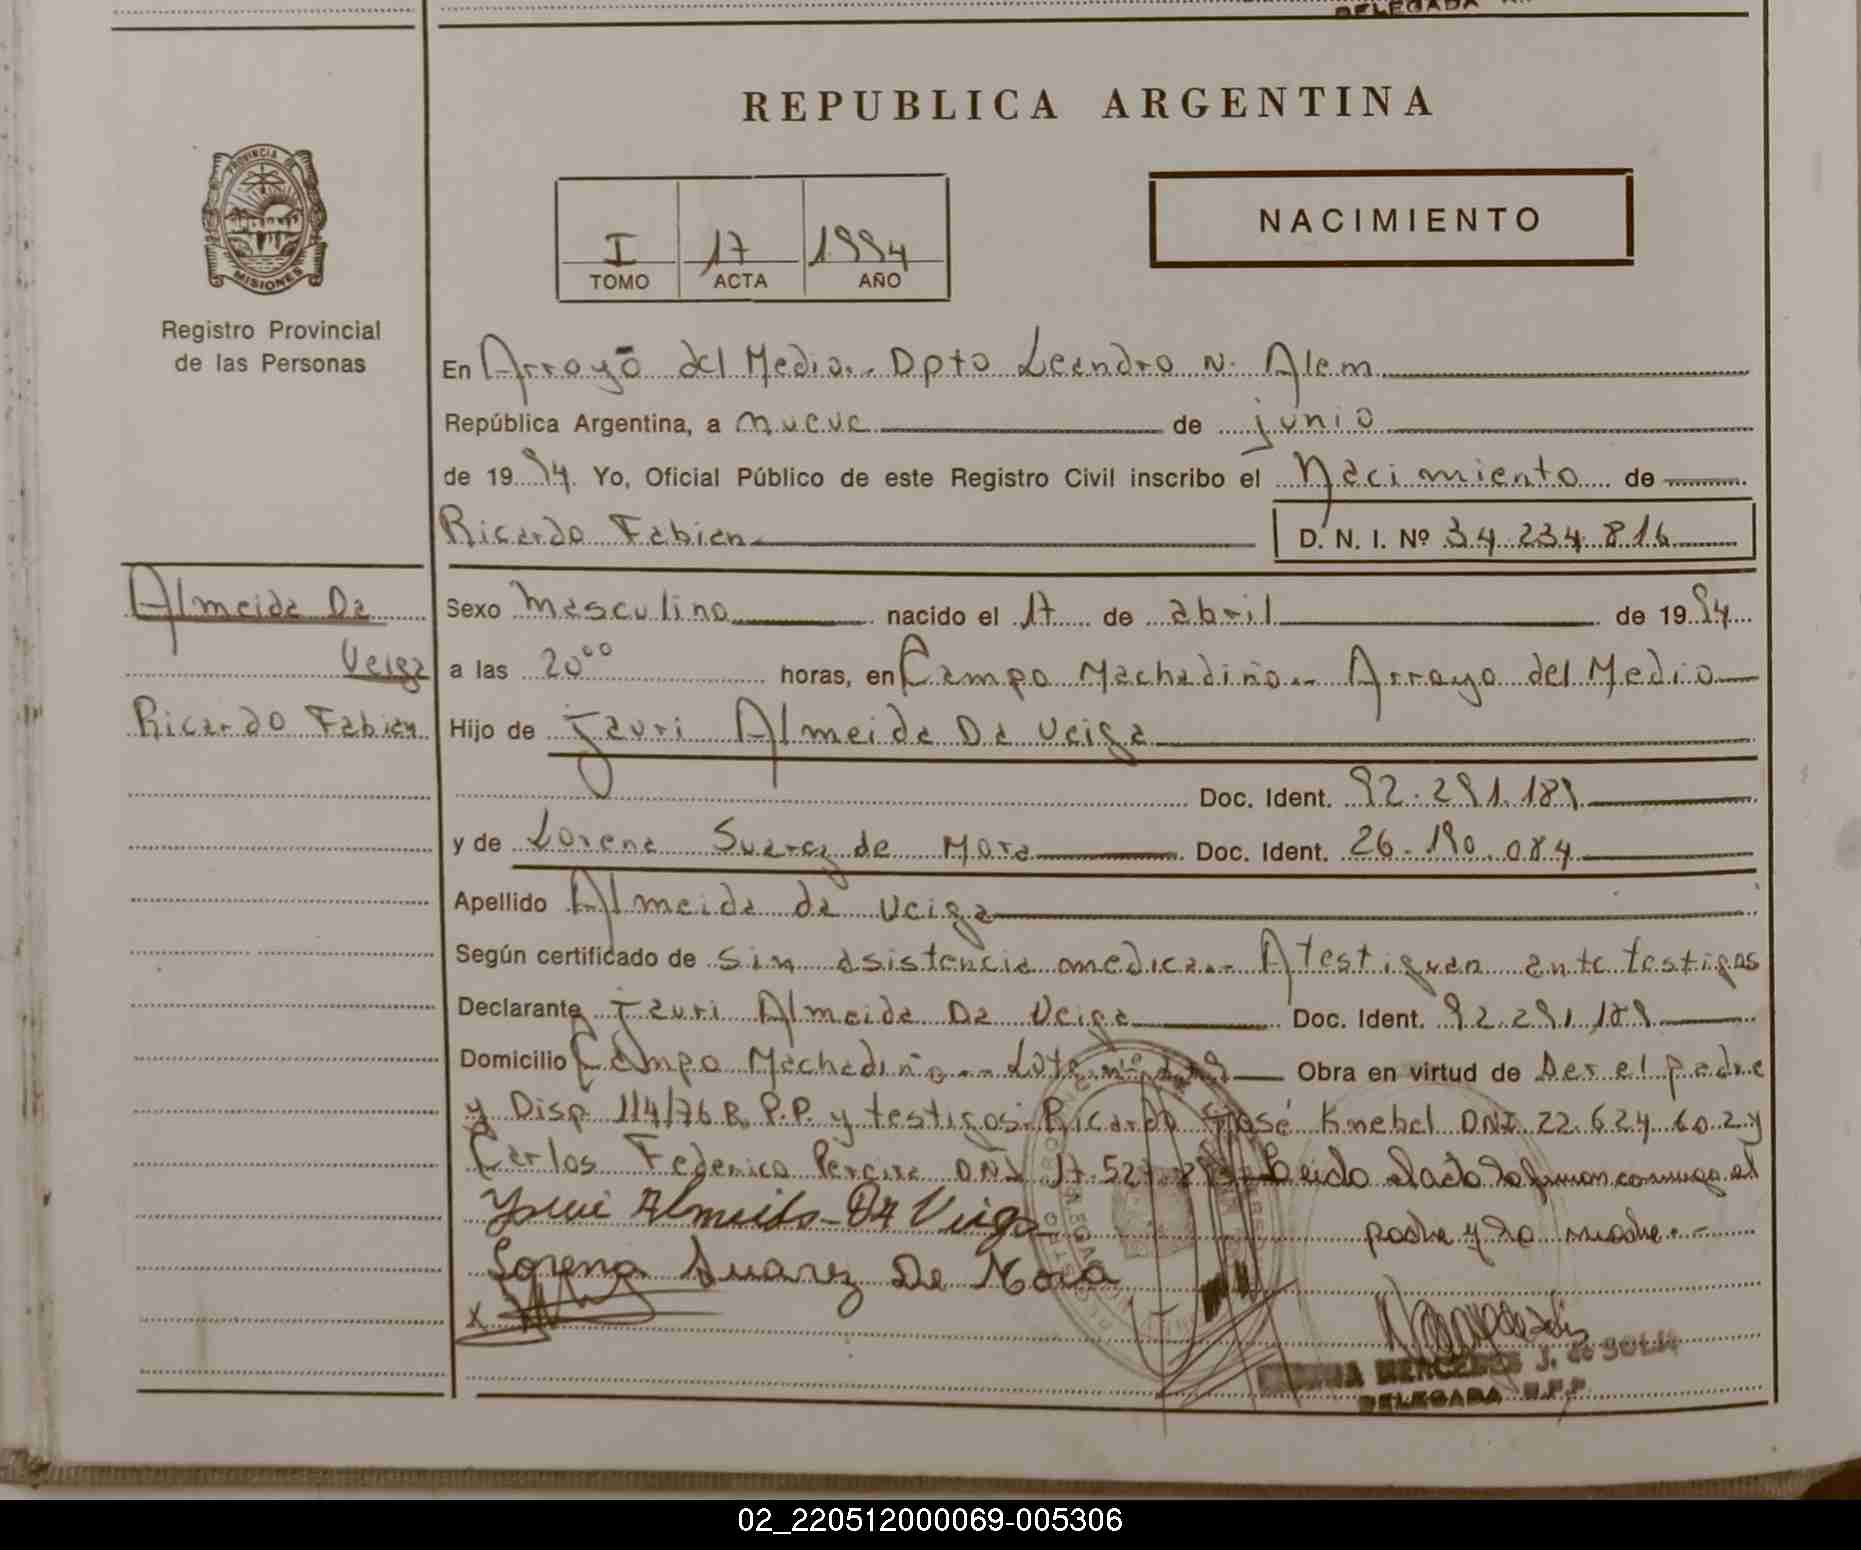 DELEGADA
REPUBLICA ARGENTINA
PROVINCIA DE
MISIONES
Registro Provincial
de las Personas
I 17 1994
TOMO ACTA AÑO
NACIMIENTO
En Arroyo del Medio.. Dpto Leandro N. Alem
República Argentina, a nueve de junio
de 19 94. Yo, Oficial Público de este Registro Civil inscribo el Nacimiento de
Ricardo Fabian
D. N. I. Nº 34 234 816
Almeida Da
Veiga
Ricardo Fabian
Sexo Masculino nacido el 17 de abril de 19 94
a las 20⁰⁰ horas, en Campo Machadiño.. Arroyo del Medio
Hijo de Jauri Almeida Da Veiga
Doc. Ident. 92.291.189
y de Lorena Suarez de Mora Doc. Ident. 26.190.084
Apellido Almeida da Veiga
Según certificado de sin asistencia medica.. Atestiguan ante testigos
Declarante Jauri Almeida Da Veiga Doc. Ident. 92.291.189
Domicilio Campo Machadiño.. Lote nº Obra en virtud de ser el padre
y Disp 114/76 R.P.P. y testigos: Ricardo José Knebel DNI 22.624.602 y
Carlos Federico Pereira DNI 17.527. Leido el acta la firman conmigo el
padre y la madre.-
Almeida-Da Veiga
Lorena Suarez De Mora
X
MERCEDES J. de
DELEGADA R.P.P.
02_220512000069-005306